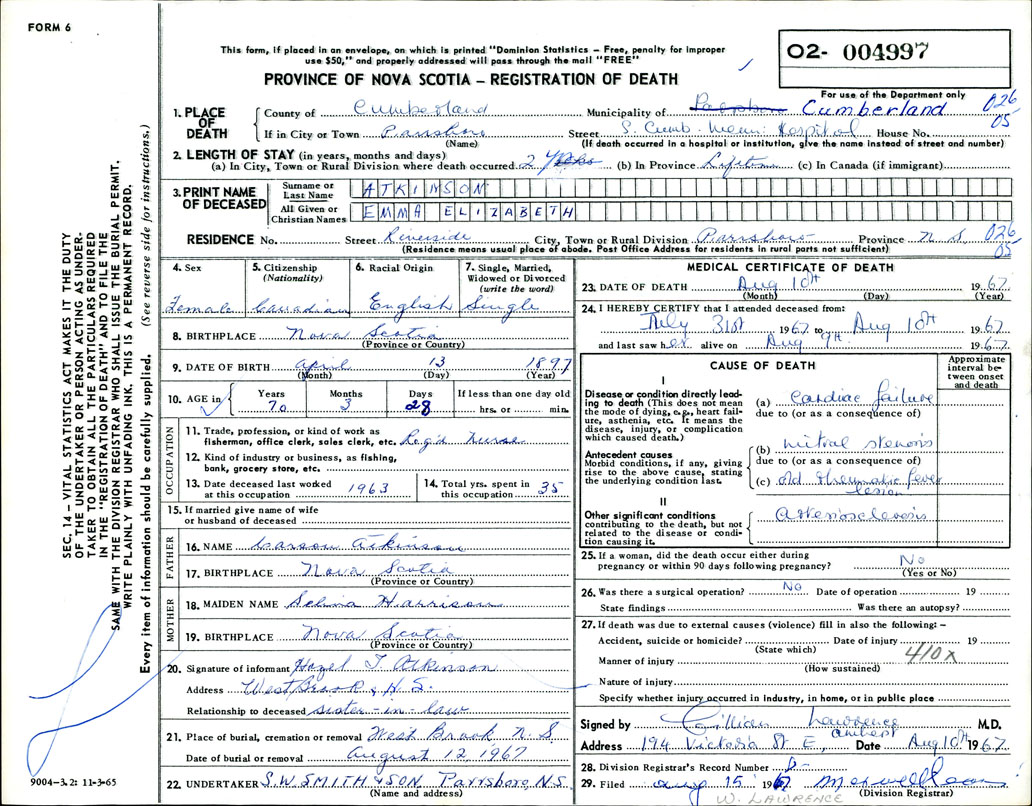 FORM 6
This form, if placed in an envelope, on which is printed "Dominion Statistics – Free, penalty for improper
use $50," and properly addressed will pass through the mail "FREE"
PROVINCE OF NOVA SCOTIA – REGISTRATION OF DEATH
02- 004997
For use of the Department only
026
05
1. PLACE OF DEATH
County of Cumberland Municipality of Parrsboro Cumberland
If in City or Town Parrsboro Street S. Cumb. Mem. Hospital House No.
(Name) (If death occurred in a hospital or institution, give the name instead of street and number)
2. LENGTH OF STAY (in years, months and days)
(a) In City, Town or Rural Division where death occurred 2 (b) In Province Lifetime (c) In Canada (if immigrant)
3. PRINT NAME OF DECEASED
Surname or Last Name ATKINSON
All Given or Christian Names EMMA ELIZABETH
RESIDENCE No. Street Riverside City, Town or Rural Division Parrsboro Province N S 026
05
(Residence means usual place of abode. Post Office Address for residents in rural parts not sufficient)
4. Sex Female
5. Citizenship (Nationality) Canadian
6. Racial Origin English
7. Single, Married, Widowed or Divorced (write the word) Single
8. BIRTHPLACE Nova Scotia
(Province or Country)
9. DATE OF BIRTH April 13 1897
(Month) (Day) (Year)
10. AGE in Years 70 Months 3 Days 28 If less than one day old hrs. or min.
OCCUPATION
11. Trade, profession, or kind of work as
fisherman, office clerk, sales clerk, etc. Reg'd Nurse
12. Kind of industry or business, as fishing,
bank, grocery store, etc.
13. Date deceased last worked at this occupation 1963
14. Total yrs. spent in this occupation 35
15. If married give name of wife
or husband of deceased
FATHER
16. NAME Carson Atkinson
17. BIRTHPLACE Nova Scotia
(Province or Country)
MOTHER
18. MAIDEN NAME Selina Harrison
19. BIRTHPLACE Nova Scotia
(Province or Country)
20. Signature of informant Hazel T. Atkinson
Address West Brook, N.S.
Relationship to deceased sister-in-law
21. Place of burial, cremation or removal West Brook N.S.
Date of burial or removal August 12, 1967
22. UNDERTAKER S.W. SMITH & SON. Parrsboro, N.S.
(Name and address)
MEDICAL CERTIFICATE OF DEATH
23. DATE OF DEATH Aug 10th 1967
(Month) (Day) (Year)
24. I HEREBY CERTIFY that I attended deceased from:
July 31st 1967 to Aug 10th 1967
and last saw her alive on Aug 9th 1967
CAUSE OF DEATH
Approximate interval between onset and death
I
Disease or condition directly leading to death (This does not mean the mode of dying, e.g., heart failure, asthenia, etc. It means the disease, injury, or complication which caused death.)
(a) Cardiac failure
due to (or as a consequence of)
Antecedent causes
Morbid conditions, if any, giving rise to the above cause, stating the underlying condition last.
(b) mitral stenosis
due to (or as a consequence of)
(c) old rheumatic fever
lesion
II
Other significant conditions
contributing to the death, but not related to the disease or condition causing it.
Arteriosclerosis
25. If a woman, did the death occur either during
pregnancy or within 90 days following pregnancy? No
(Yes or No)
26. Was there a surgical operation? No Date of operation 19
State findings Was there an autopsy?
27. If death was due to external causes (violence) fill in also the following: –
Accident, suicide or homicide? Date of injury 19
(State which)
Manner of injury 410x
(How sustained)
Nature of injury
Specify whether injury occurred in industry, in home, or in public place
Signed by Gillian Lawrence M.D.
Address 194 Victoria St E, Amherst Date Aug 10th 1967
28. Division Registrar's Record Number
29. Filed Aug 15 1967
(Division Registrar)
W. LAWRENCE
SEC. 14 – VITAL STATISTICS ACT MAKES IT THE DUTY
OF THE UNDERTAKER OR PERSON ACTING AS UNDER-
TAKER TO OBTAIN ALL THE PARTICULARS REQUIRED
IN THE "REGISTRATION OF DEATH" AND TO FILE THE
SAME WITH THE DIVISION REGISTRAR WHO SHALL ISSUE THE BURIAL PERMIT.
WRITE PLAINLY WITH UNFADING INK. THIS IS A PERMANENT RECORD.
Every item of information should be carefully supplied. (See reverse side for instructions.)
9004–3.2: 11-3-65